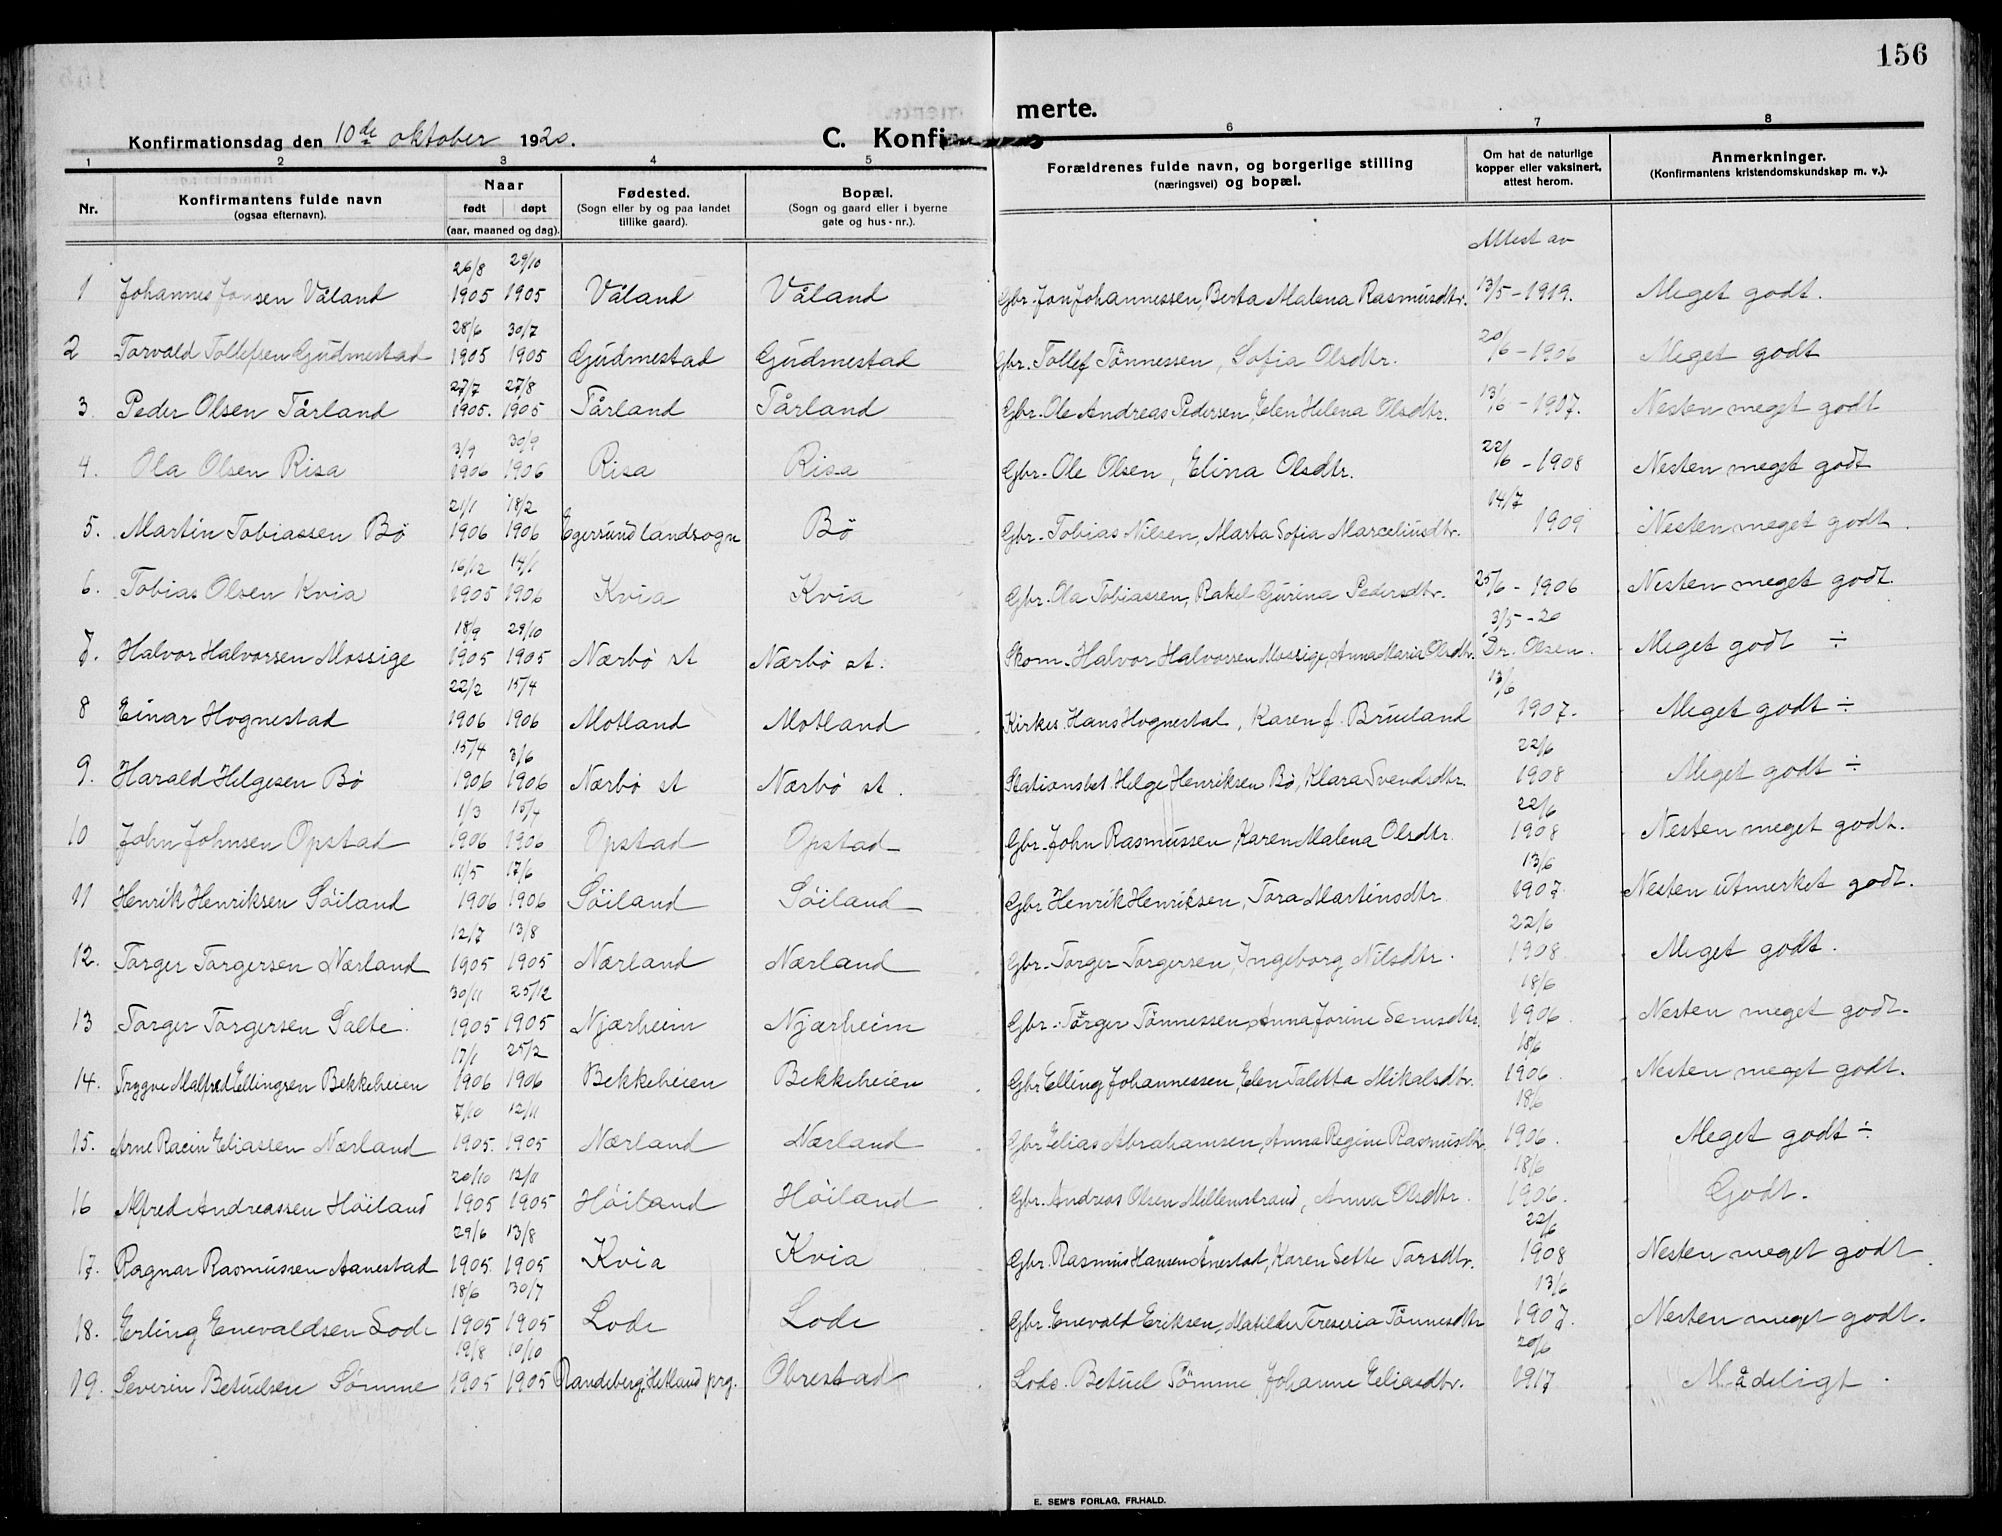 156
Konfirmationsdag den 10de oktober 1920.
C. Konfirmerte.
1 2 3 4 5 6 7 8
Nr. Konfirmantens fulde navn (ogsaa efternavn). Naar født døpt (aar, maaned og dag). Fødested. (Sogn eller by og paa landet tillike gaard). Bopæl. (Sogn og gaard eller i byerne gate og hus-nr.). Forældrenes fulde navn, og borgerlige stilling (næringsvei) og bopæl. Om hat de naturlige kopper eller vaksinert, attest herom. Anmerkninger. (Konfirmantens kristendomskundskap m. v.).
Attest av
1 Johannes Jonsen Våland 26/8 1905 29/10 1905 Våland Våland Gbr. Jon Johannessen, Berta Malena Rasmusdtr. 13/5 - 1919. Meget godt.
2 Torvald Tollefsen Gudmestad 28/6 1905 30/7 1905 Gudmestad Gudmestad Gbr. Tollef Tönnessen, Sofia Olsdtr. 20/6 - 1906 Meget godt
3. Peder Olsen Tårland 27/7 1905. 27/8 1905 Tårland Tårland Gbr. Ole Andreas Pedersen, Elen Helena Olsdtr. 13/6 - 1907. Nesten meget godt
4. Ola Olsen Risa 3/9 1906 30/9 1906 Risa Risa Gbr. Ole Olsen, Elina Olsdtr. 22/6 - 1908 Nesten meget godt
5. Martin Tobiassen Bö 21/1 1906 18/2 1906 Egersund landsogn Bö Gbr. Tobias Nilsen, Marta Sofia Marceliusdtr. 14/7 1909 Nesten meget godt.
6. Tobias Olsen Kvia 16/12 1905 14/1 1906 Kvia Kvia Gbr. Ola Tobiassen, Rakel Gurina Pedersdtr. 25/6 - 1906 Nesten meget godt.
7. Halvor Halvorsen Mossige 18/9 1905 29/10 1905 Nærbö st Nærbö st. Skom. Halvor Halvorsen Mossige, Anna Maria Olsdtr. 3/5 - 20 Dr. Olsen. Meget godt ÷
8 Einar Hognestad 22/2 1906 15/4 1906 Motland Motland Kirkes. Hans Hognestad, Karen f. Brueland 13/6 1907. Meget godt ÷
9. Harald Helgesen Bö 15/4 1906 3/6 1906 Nærbö st Nærbö st. Stationsbet. Helge Henriksen Bö, Klara Svendsdtr. 22/6 1908 Meget godt ÷
10 John Johnsen Opstad 1/3 1906 15/4 1906 Opstad Opstad Gbr. John Rasmussen, Karen Malena Olsdtr. 22/6 1908 Nesten meget godt.
11 Henrik Henriksen Söiland 11/5 1906 17/6 1906 Söiland Söiland Gbr Henrik Henriksen, Tora Martinsdtr 13/6 1907 Nesten utmerket godt.
12. Torger Torgersen Nærland 12/7 1905 13/8 1905 Nærland Nærland Gbr. Torger Torgersen, Ingeborg Nilsdtr. 22/6 1908 Meget godt.
13 Torger Torgersen Salte. 30/11 1905 25/12 1905 Njærheim Njærheim Gbr. Torger Tönnessen, Anna Jorine Semsdtr. 18/6 1906. Nesten meget godt.
14. Trygve Malfred Ellingsen Bekkeheien 17/1 1906 25/2 1906 Bekkeheien Bekkeheien Gbr Elling Johannessen, Elen Taletta Mikalsdtr. 18/6 1906. Nesten meget godt.
15. Arne Racin Eliassen Nærland 7/10 1905. 12/11 1905 Nærland Nærland Gbr Elias Abrahamsen, Anna Regine Rasmusdtr. 18/6 1906. Meget godt ÷
16 Alfred Andreassen Höiland 20/10 1905 12/11 1905 Höiland Höiland Gbr. Andreas Olsen Mellemstrand, Anna Olsdtr. 18/6 1906. Godt.
17. Ragnar Rasmussen Aanestad 29/6 1905 13/8 1905 Kvia Kvia Gbr. Rasmus Hansen Ånestad, Karen Sette Tarsdtr. 22/6 1908 Nesten meget godt
18. Erling Enevaldsen Lode 18/6 1905 30/7 1905 Lode Lode Gbr. Enevald Eriksen, Matilde Tereseria Tönnesdtr 13/6 1907. Nesten meget godt.
19. Severin Betuelsen Sömme 19/8 1905 10/10 1905 Randeberg, Hetland prg. Obrestad Lods. Betuel Sömme, Johanne Eliasdtr. 20/6 1917 Mådeligt.
E. SEM'S FORLAG, FR.HALD.